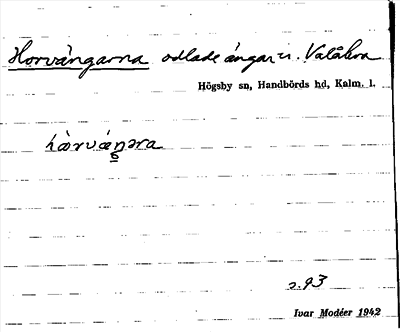 Horvångarna odlade ängar
Högsby sn, Handbörds hd, Kalm. l.
hàrváŋəra
s. 93
Ivar Modéer 1942